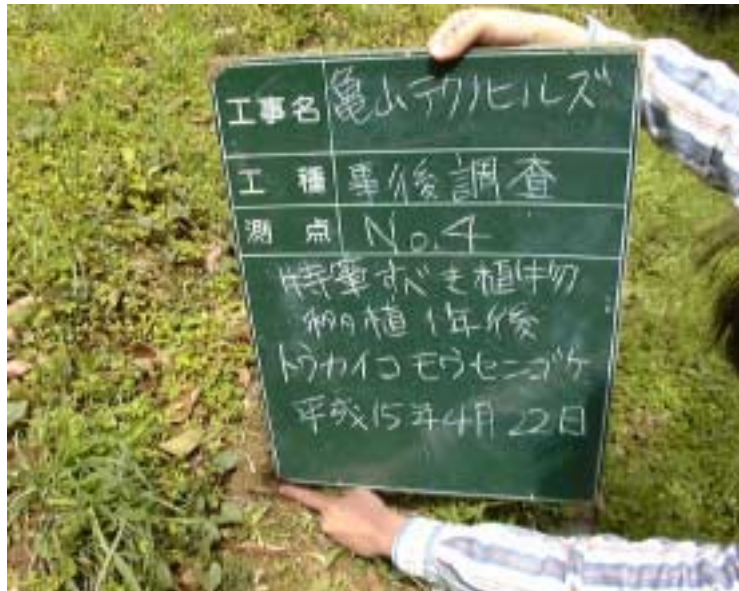 工事名 亀山テクノヒルズ
工種 事後調査
測点 No.4
特筆すべき植物
移植1年後
トウカイコモウセンゴケ
平成15年4月22日